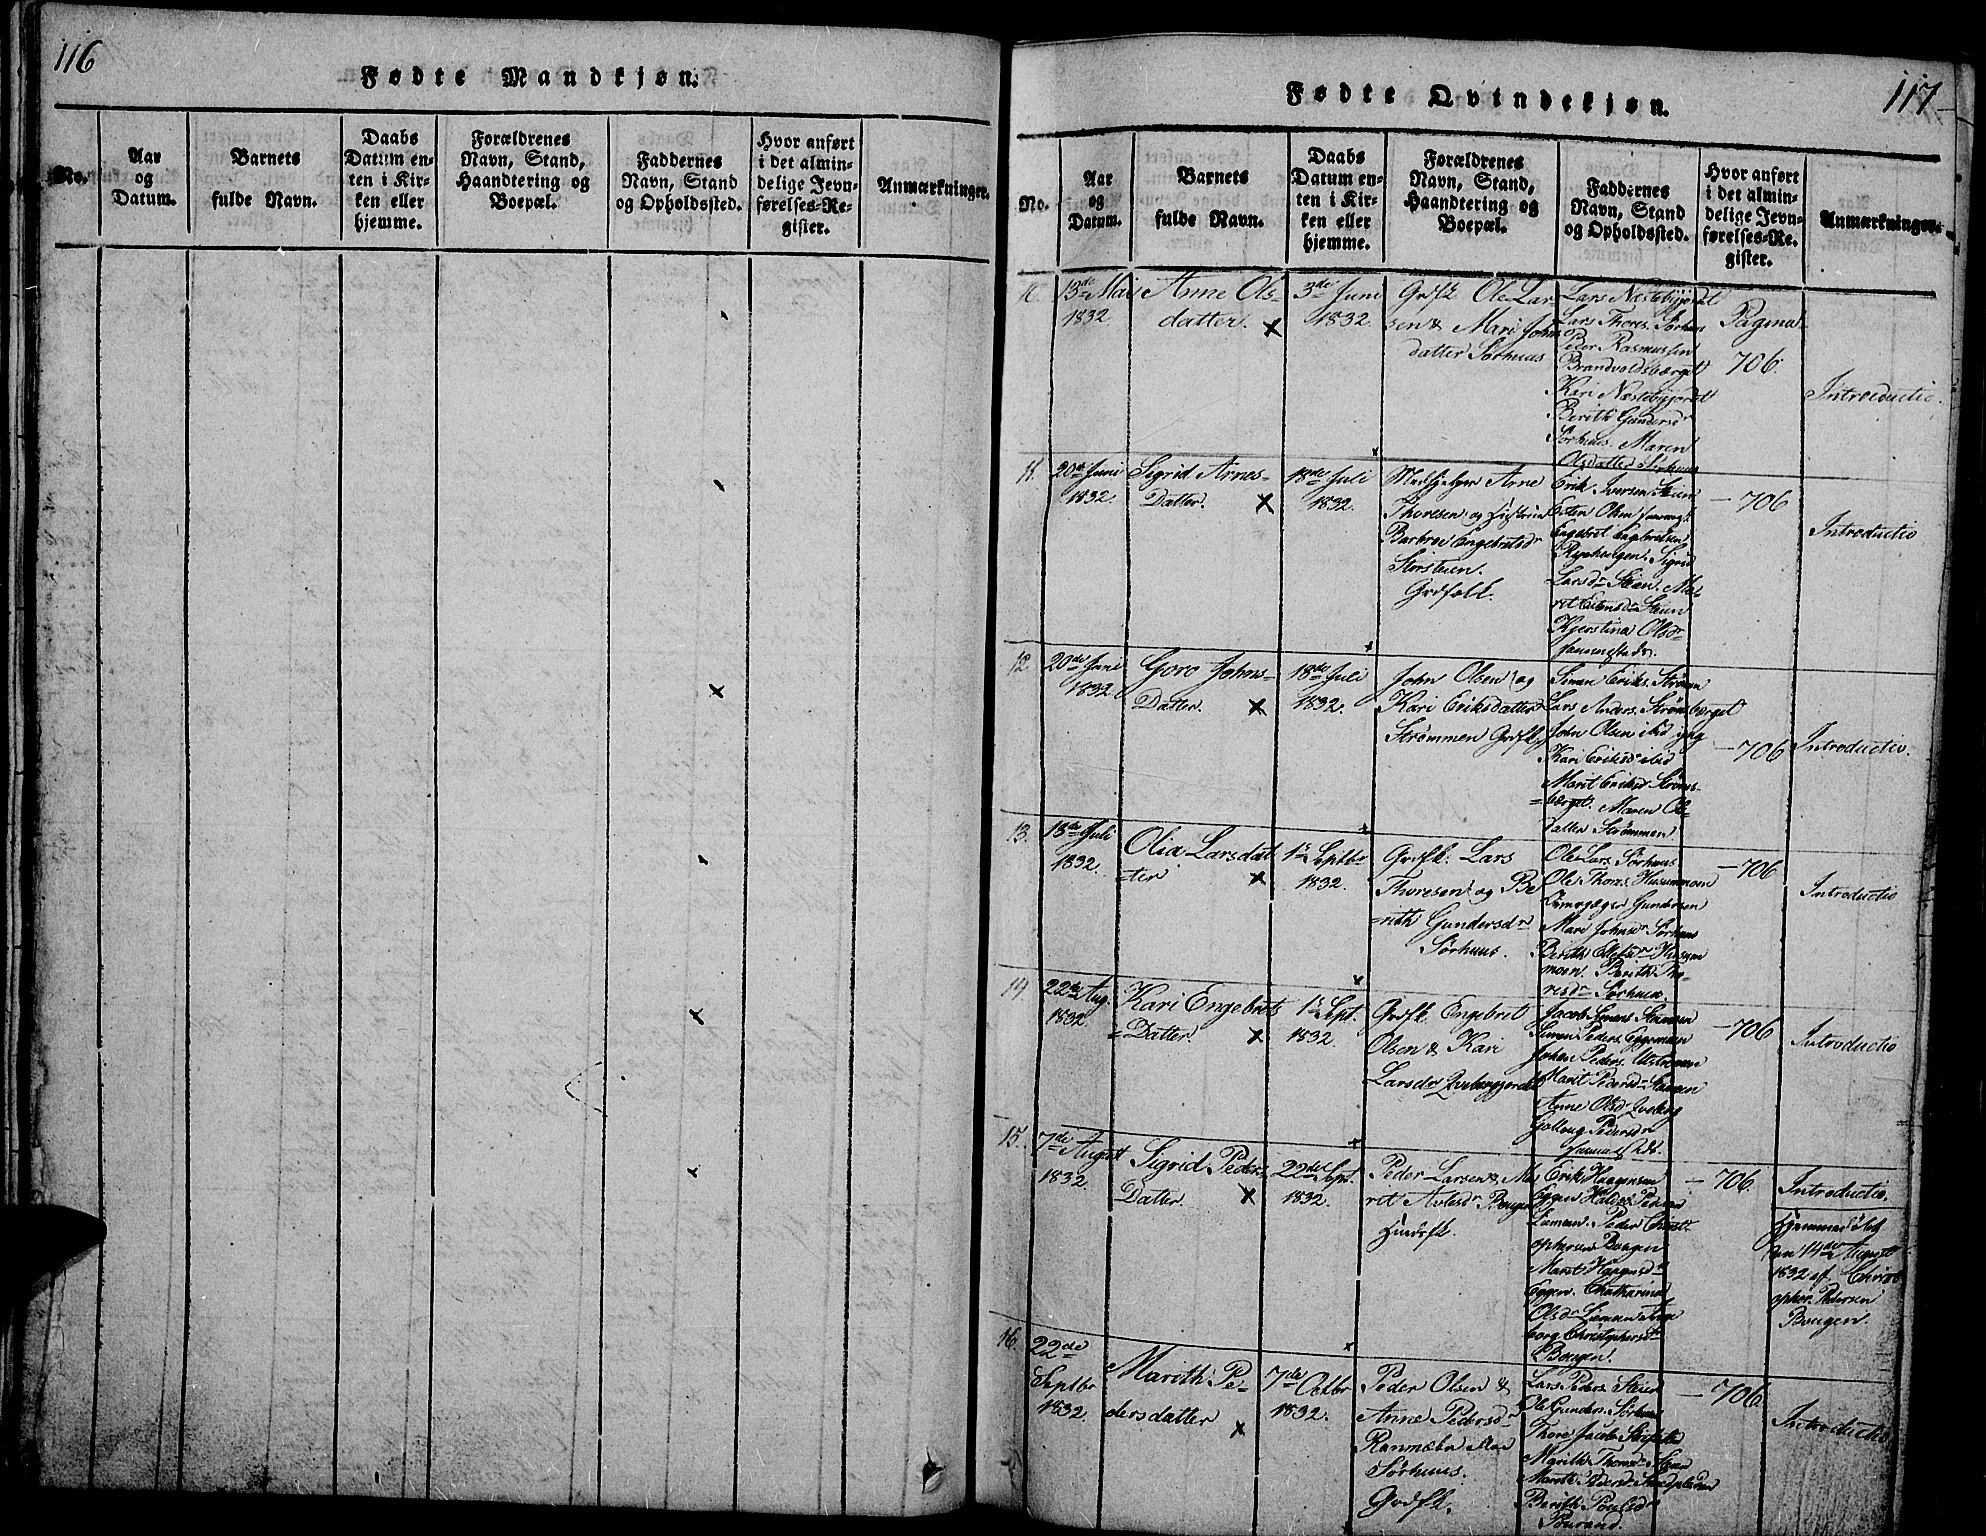 116
Fødte Mandkjøn.
No.
Aar
og
Datum.
Barnets
fulde Navn.
Daabs
Datum en-
ten i Kir-
ken eller
hjemme.
Forældrenes
Navn, Stand,
Haandtering og
Boepæl.
Faddernes
Navn, Stand
og Opholdssted.
Hvor anført
i det almin-
delige Jevn-
førelses-Re-
gister.
Anmærkninger.
117
Fødte Qvindekjøn.
No.
Aar
og
Datum.
Barnets
fulde Navn.
Daabs
Datum en-
ten i Kir-
ken eller
hjemme.
Forældrenes
Navn, Stand,
Haandtering og
Boepæl.
Faddernes
Navn, Stand
og Opholdssted.
Hvor anført
i det almin-
delige Jevn-
førelses-Re-
gister.
Anmærkninger.
13de Mai
1832.
Anne Ols-
datter.
3de Juni
1832.
Grdfk Ole Lar
sen & Mari Johns
datter Sørhuus
Lars Næstebyjordet
Lars Thores. Sørhuu
Peder Rasmussen
Brandvoldsbærget
Kari Næstebyjordet
Berith Gundersdr
Sørhuus. Maren
Olsdatter Sørhuus
Pagina
706.
Introductio.
11.
20de Juni
1832.
Sigrid Arnes-
Datter.
18de Juli
1832.
Arne
Thoresen og
Barbroe Engebretsdr
Storsteien.
Grdfolk.
Erik Iversen Steien
Esten Olsen
Engebret Engebretsen
Sigrid
Larsdr Steien. Ma-
rit Estensdr Steien
Kjerstina Olsdr
- 706
Introductio
12
20de Juni
1832.
Goro Johns-
Datter.
18de Juli
1832.
John Olsen og
Kari Eriksdatter
Strømmen Grdfk
Simen Eriks. Strømm
Lars Anders. Strømsbærget
John Olsen ibid
Kari Eriksdr ibid
Marit Eriksd Strøms-
=bærget. Maren Ols-
datter Strømmen
- 706
Introductio.
13.
18de Juli
1832.
Olia Larsdat
=ter
1ste Septbr
1832.
Grdfk. Lars
Thoresen og Be
=rith Gundersdr
Sørhuus.
Ole Lars. Sørhuus
Ole Thores. Husummoen
Gundersen
Mari Johnsdr Sørhuus
Berith Husum
moen. Berith Tho-
resdr Sørhuus.
- 706
Introductio
14
22de Aug.
1832
Kari Engebrets
=Datter.
1ste Sept.
1832.
Grdfk Engebret
Olsen & Kari
Larsdr
Jacob Simens.
Simen Peders. Eggemoen
Johen Peders.
Marit Pedersdr
Anne Olsdr
Gollaug Pedersdr
- 706
Introductio
15.
7de August
1832.
Sigrid Peders
Datter.
22de Sept.
1832.
Peder Larsen & Ma
rit Bougen
Huusfk.
Erik Haagensen
Eggen
Peder Christ
ophersen Bougen
Marit Haagensdr
Eggen. Chatharina
Olsdr
borg Christophersdr
Bougen.
- 706
Introductio.
Hjemmedøbt
den 14de August
1832 af Christ
opher Pedersen
Bougen.
16.
22de
Septbr
1832.
Marith Pe-
dersdatter
7de Octbr
1832.
Peder Olsen &
Anne Pedersdr
Sørhuus.
Grdfk.
Lars Peders. Steien
Ole Gunders. Sørhuus
Thore Jacobs.
Marith Thoresdr Steien
Marith Pedersdr
Berith Poulsdr
- 706
Introductio